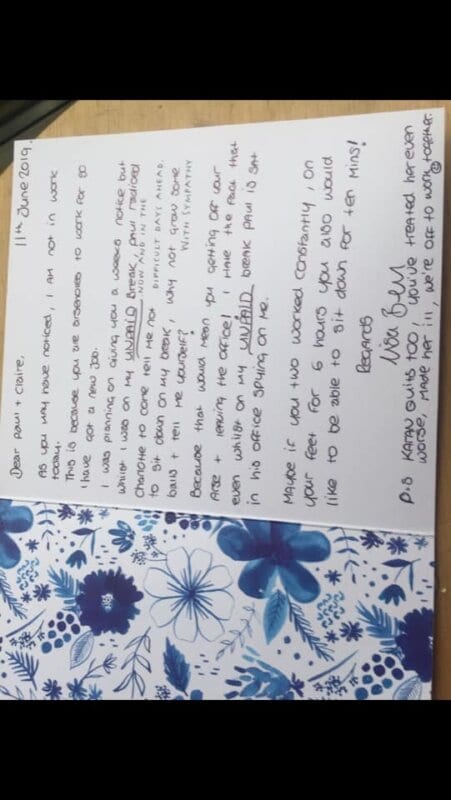 11th June 2019.
Dear Paul + Claire,
As you may have noticed, I am not in work
today.
This is because you are arseholes to work for so
I have got a new job.
I was planning on giving you a weeks notice but
whilst I was on my UNPAID break, Paul radioed
Charlotte to come tell me not
NOW AND IN THE
DIFFICULT DAYS AHEAD.
to sit down on my break, why not grow some
balls + tell me yourself?
WITH SYMPATHY
Because that would mean you getting off your
Arse + leaving the office! I hate the fact that
even whilst on my UNPAID break Paul is sat
in his office spying on me.
Maybe if you two worked constantly, on
your feet for 6 hours you also would
like to be able to sit down for ten mins!
Regards
P.S KATAN QUITS TOO, you've treated her even
worse, made her ill, we're off to work together.